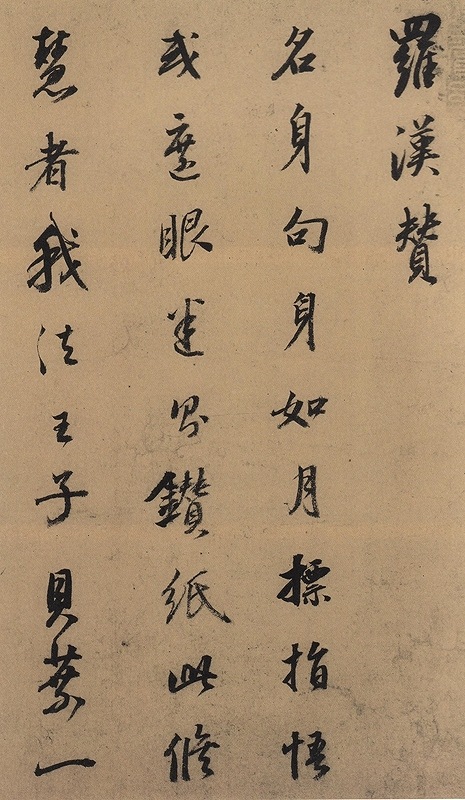 羅漢贊
名身句身如月摽指悟
或遮眼迷鑽紙此脩
慧者我法王子貝葉一